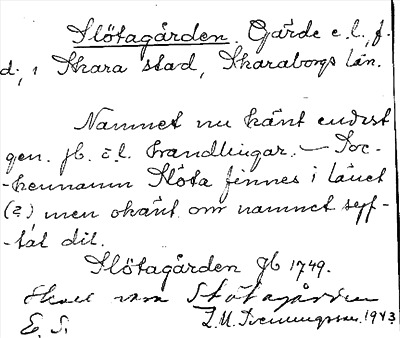 Slötagården. Gärde e. l., f.
d., i Skara stad, Skaraborgs län.
Namnet nu känt endast
gen. jb. ä. l. handlingar. — Soc-
-kennamn Slöta finnes i länet
(?) men okänt om namnet syf-
-tat dit.
Slötagården Jb 1749.
Skall vara Stötagården
E. S. 1943